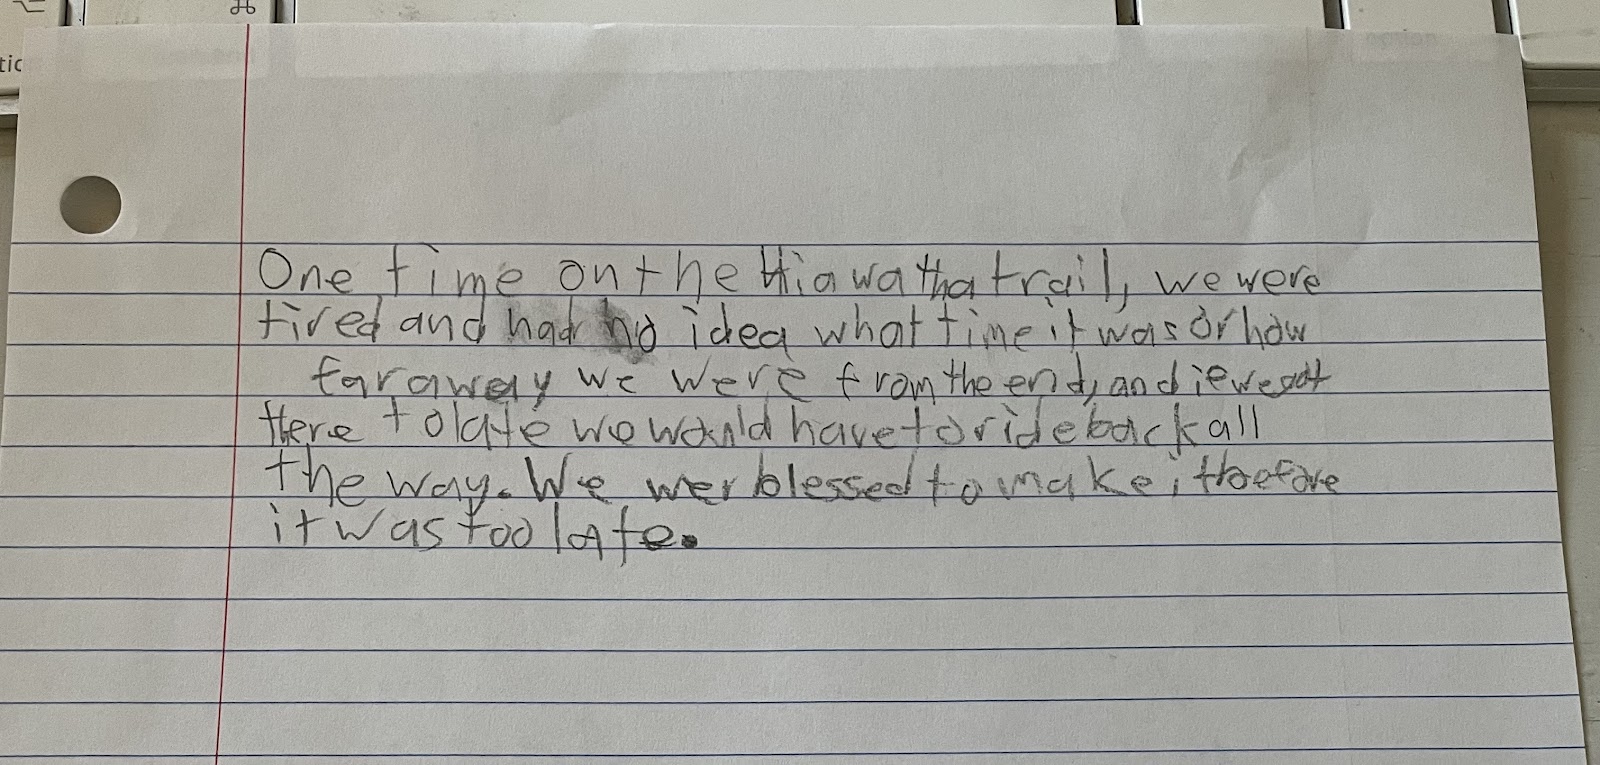 ⌥ ⌘
tic
One time on the Hiawatha trail, we were
tired and had no idea what time it was or how
far away we were from the end, and if we got
there to late we would have to ride back all
the way. We wer blessed to make it before
it was too late.